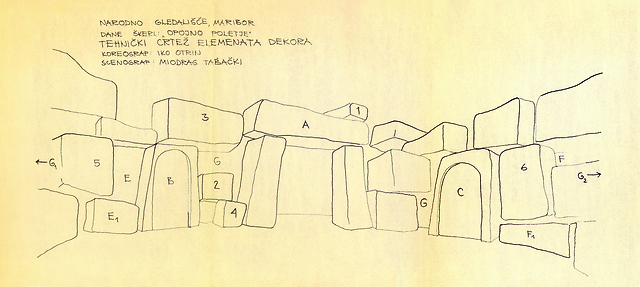 NARODNO GLEDALIŠČE, MARIBOR
DANE ŠKERL: „OPOJNO POLETJE"
TEHNIČKI CRTEŽ ELEMENATA DEKORA
KOREOGRAF: IKO OTRIN
SCENOGRAF: MIODRAG TABAČKI
1
3
A
1
←G1
5
E
B
G
2
4
E1
G
C
6
F
G2→
F1